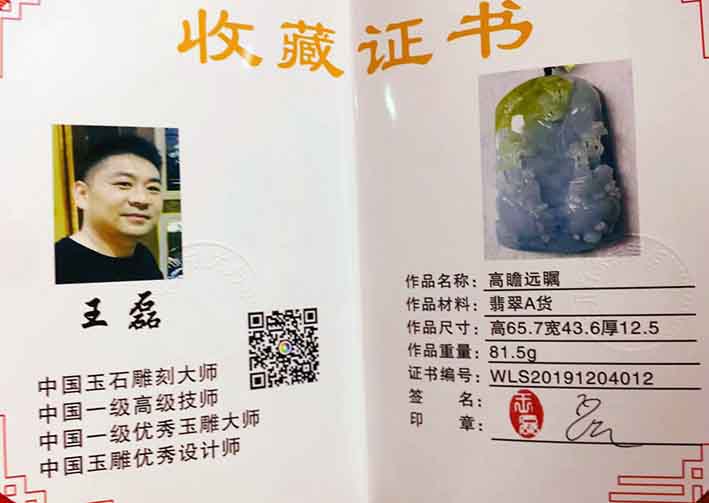 收藏证书
王磊
中国玉石雕刻大师
中国一级高级技师
中国一级优秀玉雕大师
中国玉雕优秀设计师
作品名称：高瞻远瞩
作品材料：翡翠A货
作品尺寸：高65.7宽43.6厚12.5
作品重量：81.5g
证书编号：WLS20191204012
签名：
印章：